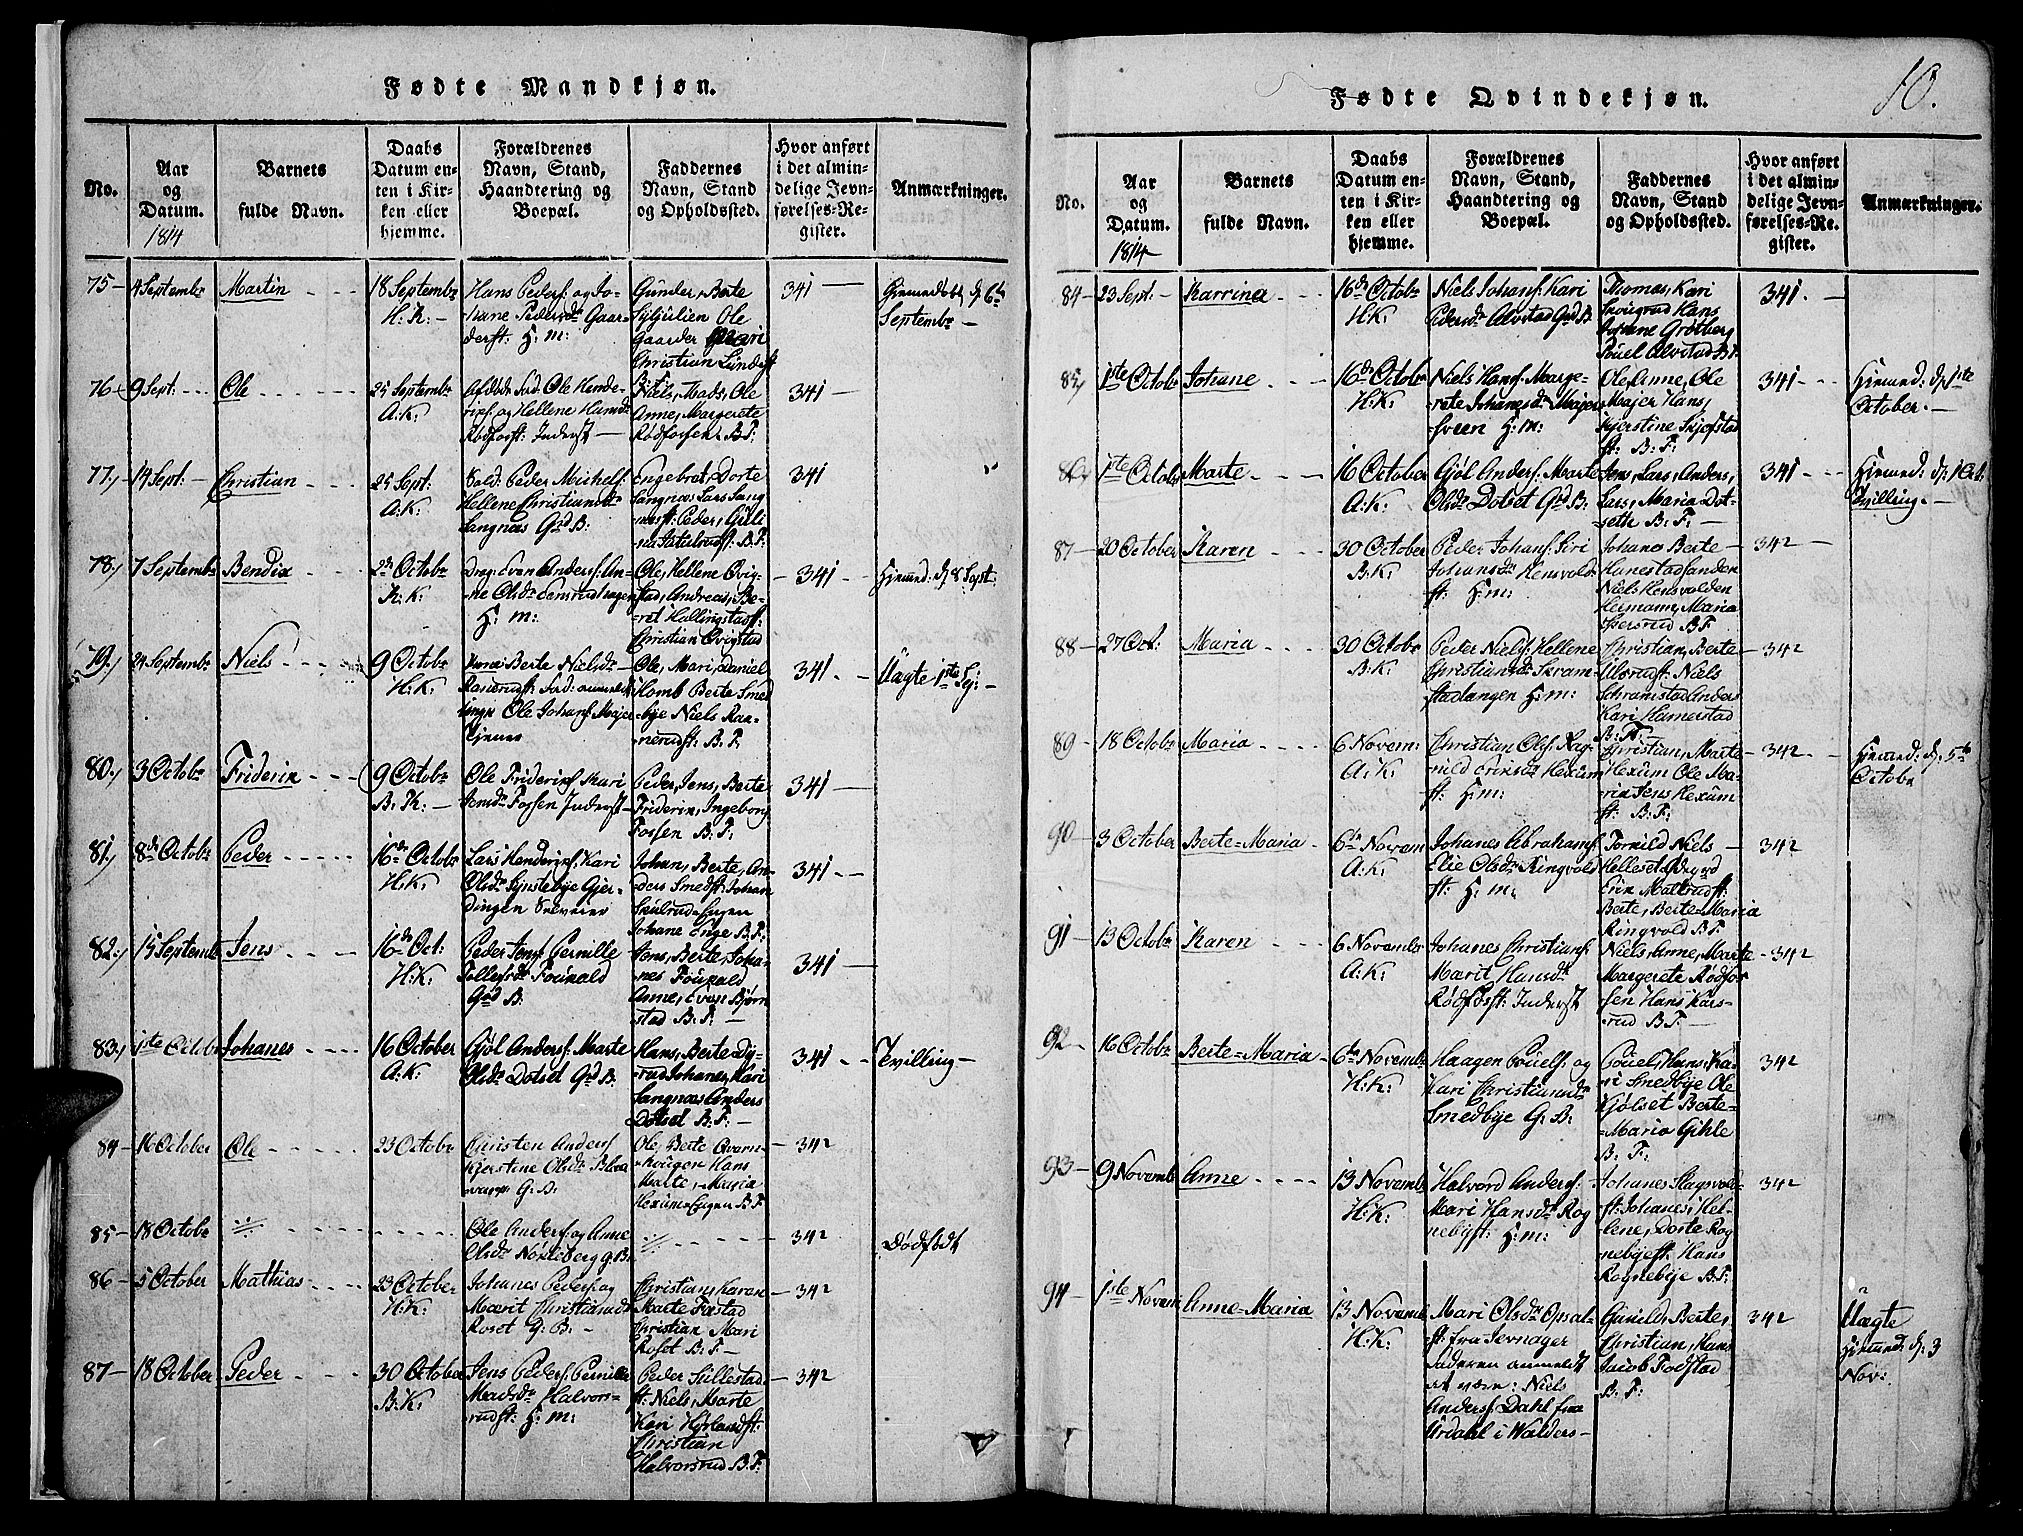 Fødte Mandkjøn.
No.
Aar
og
Datum.
1814
Barnets
fulde Navn.
Daabs
Datum en-
ten i Kir-
ken eller
hjemme.
Forældrenes
Navn, Stand,
Haandtering og
Boepæl.
Faddernes
Navn, Stand
og Opholdssted.
Hvor anført
i det almin-
delige Jevn-
førelses-Re-
gister.
Anmærkninger.
75 4 Septembr Martin 18 Septembr
H: K:
Hans Peders: og Jo-
hane Pedersdr Gaar-
derst: H: M:
Gunder, Berte
Ole
Gaarder Mari
Christian Lundest
B: F:
341
Hjemedobt d: 6te
Septembr
76 9 Sept: Ole 25 Septembr
A: K:
Sold: Ole Hende-
rics: og Hellene Hansdr
Rødfosst: Inderst
Niels, Mads, Ole
Anne, Margerete
Rødfossen B: F:
341
77 14 Sept: Christian 25 Sept:
A: K:
Sold: Peder Michels:
Hellene Christiansdr
Langnæs Grd B:
Engebret, Dorte
Langnæs Lars Lang
næsst: Peder,
B: F:
341
78 7 Septembr Bendix 2den Octobr
K: K:
Drag: Even Anders: An-
ne Olsdr
H: M:
Ole, Hellene Qvig-
stad, Andreas, Be-
ret Hallingstadst:
Christian Qvigstad
341
Hjemed: d: 8 Sept:
79 24 Septembr Niels 9 Octobr
H: K:
Berte Nielsdr
Ranerudst:
Ole Johans: Majer
Tjener
Ole, Mari, Daniel
Homb Berte Smed
bye Niels Ran-
nerudst: B: F:
341
Uægte 1ste Lej:
80 3 Octobr Friderix 9 Octobr
B: K:
Ole Friderixs: Kari
Jensdr Fossen Inderst
Peder, Jens, Berte
Friderix, Ingeborg
Fossen B: F:
341
81 8de Octobr Peder 16de Octobr
H: K:
Lars Henderixs: Kari
Olsdr Synstebye Gjer-
dingen Selveier
Johan, Berte, An-
ders Smedst: Johan
Skulrud Engen
Johane Enge B: F:
341
82 15 Septembr Jens 16de Oct:
H: K:
Peder Jens: Pernille
Tollefsdr Foukald
Grd B:
Jens, Berte, Joha-
nes Foukald
Anne, Even Bjørn
stad B: F:
341
83 1ste Octobr Johanes 16 October
A: K:
Gjøl Anders: Marte
Olsdr Dotset Grd B:
Hans, Berte Dy-
rud Johanes, Kari
Langnæs Anders
Dotset B: F:
341
Tvilling
84 16 October Ole 23 Octobr
Christen Anders:
Kjerstine Olsdr
G: B:
Ole, Berte Qvern-
Hans
Malte, Maria
Hexum Engen B: F:
342
85 18 Octobr
Ole Anders: og Anne
Olsdr Nørdeberg G: B:
342
Dødfødt
86 5 October Mathias 23 October
H: K:
Johanes Peders: og
Mærit Christiansdr
Roset G: B:
Christian, Karen
Marte Fixstad
Christian Mari
Roset B: F:
342
87 18 October Peder 30 October
B: K:
Jens Peders: Pernille
Madsdr Halvors-
rudst: H: M:
Peder Sullestad
st: Niels, Marte
Kari
Christian
Halvorsrud B: F:
342
Fødte Qvindekjøn.
10.
No.
Aar
og
Datum.
1814
Barnets
fulde Navn.
Daabs
Datum en-
ten i Kir-
ken eller
hjemme.
Forældrenes
Navn, Stand,
Haandtering og
Boepæl.
Faddernes
Navn, Stand
og Opholdssted.
Hvor anført
i det almin-
delige Jevn-
førelses-Re-
gister.
Anmærkninger.
84 23 Sept: Karrina 16de Octobr
H: K:
Niels Johans: Kari
Pedersdr Alvstad Grd B
Thomas, Kari
Skougrud Hans
Johane Grøtberg
Pouel Alvstad B: F:
341
85 1ste Octobr Johane 16de October
H: K:
Niels Hans: Marge-
rete Johanesdr Majer
Sveen H: M:
Ole, Anne, Ole
Majer Hans,
Kjerstine Skjefstad
st: B: F:
341
Hjemed: d: 1ste
October.
86 1ste Octobr Marte 16 October
A: K:
Gjøl Anders: Marte
Olsdr Dotset Grd B:
Jens, Lars, Anders,
Lars, Maria Dot-
seth B: F:
341
Hjemed: d: 1 Oct:
Tvilling
87 20 October Karen 30 October
B: K:
Peder Johans: Siri
Johansdr Hensvold
st: H: M:
Johanes Berte
Hanestadsanden
Niels Hensvolden
Hermann, Maria
Spersrud B: F:
342
88 27 Oct: Maria 30 Octobr
B: K:
Peder Niels: Hellene
Christiansdr Skram-
stadlangen H: M:
Christian, Berte
Ulsrudst: Niels
Schramstad Anders
Kari Hamerstad
B: F:
342
89 18 Octobr Maria 6 Novem:
A: K:
Christian Ols: Rag-
nild Erixdr Hexum
st: H: M:
Christian, Marte
Hexum Ole Ma-
ria Jens Hexum
st: B: F:
342
Hjemed: d: 5te
Octobr
90 3 October Berte=Maria 6te Novem
A: K:
Johanes Abrahams:
Elie Olsdr Ringvold
st: H: M:
Tornild Niels
Erix Maltrudst:
Berte, Berte=Maria
Ringvold B: F:
342
91 13 Octobr Karen 6 Novembr
A: K:
Johanes Christians:
Marit Hansdr
Rødfosst: Inderst
Niels, Anne, Marte
Margerete Rødfos-
sen Hans Kars-
rud B: F:
342
92 16 Octobr Berte=Maria 6te Novembr
H: K:
Haagen Pouels: og
Kari Christiansdr
Smedbye G: B:
Pouel, Hans, Ka-
ri Smedbye Ole
Kjølset Berte=
=Maria Gihle
B: F:
342
93 9 Novembr Anne 13 Novembr
H: K:
Halvord Anders:
Mari Hansdr Rog
nebyst: H: M:
Johanes Slagsvold
st: Johanes, Hel-
lene, Dorte Rog
nebyest: Hans
Rognebye B: F:
342
94 1ste Novem Anne=Maria 13 Novembr
H: K:
Mari Olsdr Opsal-
st: fra Jevnager
Faderen anmeldt
at være: Niels
Anders: Dahl fra
Urdahl i Walders
Gunild, Berte,
Christian, Hans
Jacob Fodstad
B: F:
342
Uægte
Hjemed: d: 3
Nov: